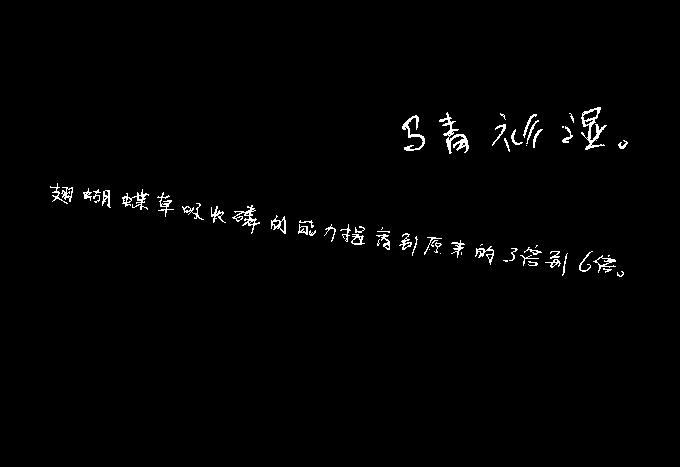 马青衫湿。
翅蝴蝶草吸收磷的能力提高到原来的3倍到6倍。